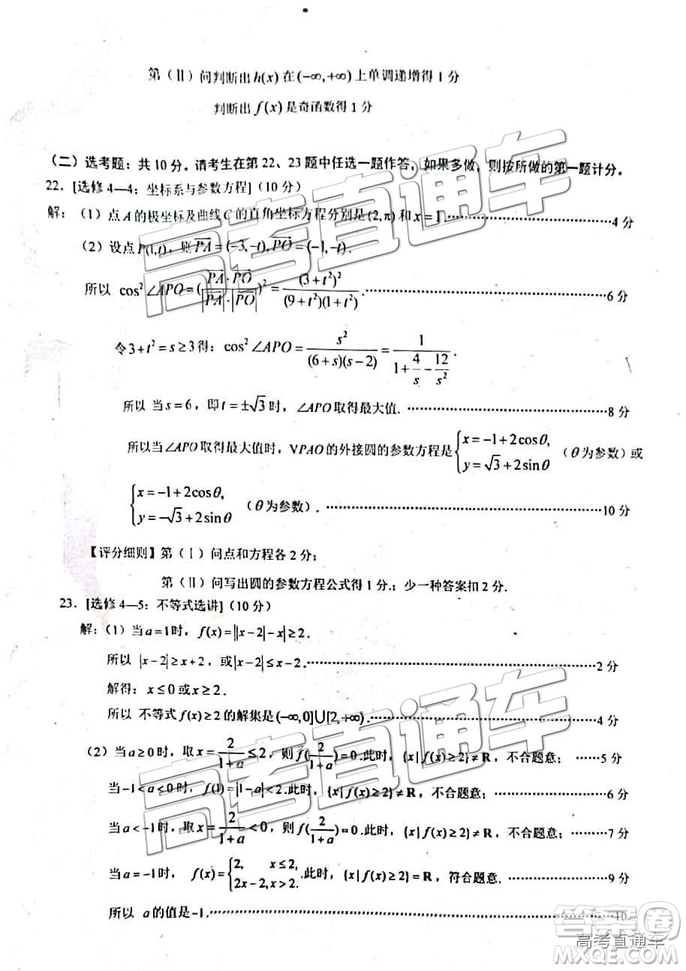 第(Ⅱ)问判断出 h(x) 在 (-∞,+∞) 上单调递增得 1 分
判断出 f(x) 是奇函数得 1 分
(二)选考题:共 10 分。请考生在第 22、23 题中任选一题作答,如果多做,则按所做的第一题计分。
22. [选修 4—4:坐标系与参数方程](10 分)
解:(1)点 A 的极坐标及曲线 C 的直角坐标方程分别是(2,π)和 x=1.……4 分
(2)设点 P(1,t),则 PA=(-3,-t),PO=(-1,-t).
所以 cos²∠APO=(PA·PO/|PA|·|PO|)²=(3+t²)²/(9+t²)(1+t²).……6 分
令 3+t²=s≥3 得:cos²∠APO=s²/(6+s)(s-2)=1/(1+4/s-12/s²).
所以 当 s=6,即 t=±√3 时,∠APO 取得最大值.……8 分
所以当∠APO 取得最大值时,VPAO 的外接圆的参数方程是{x=-1+2cosθ, y=√3+2sinθ (θ为参数)或
{x=-1+2cosθ, y=-√3+2sinθ (θ为参数).……10 分
【评分细则】第(Ⅰ)问点和方程各 2 分;
第(Ⅱ)问写出圆的参数方程公式得 1 分.;少一种答案扣 2 分.
23. [选修 4—5:不等式选讲](10 分)
解:(1)当 a=1 时,f(x)=||x-2|-x|≥2.
所以 |x-2|≥x+2,或|x-2|≤x-2.……2 分
解得:x≤0 或 x≥2.
所以 不等式 f(x)≥2 的解集是(-∞,0]∪[2,+∞).……4 分
(2)当 a≥0 时,取 x=2/(1+a)≤2,则 f(2/(1+a))=0.此时,{x|f(x)≥2}≠R,不合题意;……5 分
当-1<a<0 时,f(1)=|1-a|<2.此时,{x|f(x)≥2}≠R,不合题意;……6 分
当 a<-1 时,取 x=2/(1+a)<0,则 f(2/(1+a))=0.此时,{x|f(x)≥2}≠R,不合题意;……7 分
当 a=-1 时,f(x)={2, x≤2, 2x-2, x>2.此时,{x|f(x)≥2}=R,符合题意.……9 分
所以 a 的值是-1.……10
高考直通车
高考直通车
答案圈
高考直通车
MXQE.COM